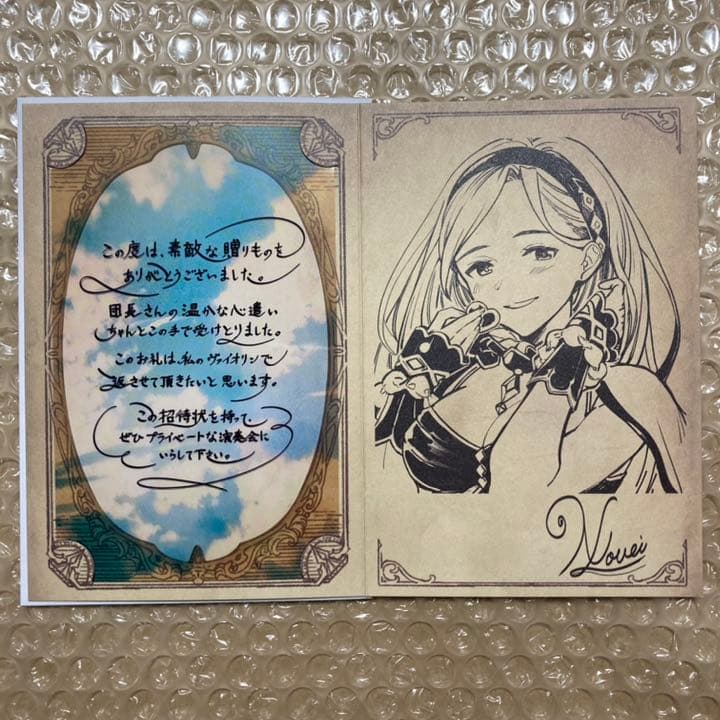 この度は、素敵な贈りものを
ありがとうございました。
団長さんの温かな心遣い
ちゃんとこの手で受けとりました。
このお礼は、私のヴァイオリンで
返させて頂きたいと思います。
この招待状を持って、
ぜひプライベートな演奏会に
いらして下さい。